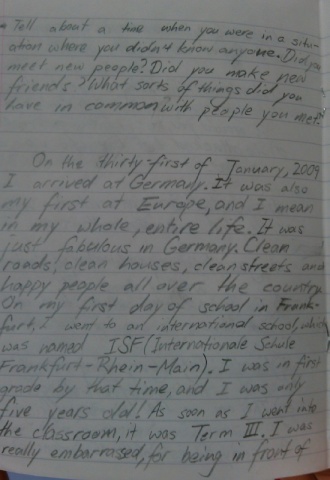 * Tell about a time when you were in a situ-
ation where you didn't know anyone. Did you
meet new people? Did you make new
friends? What sorts of things did you
have in common with people you meet?
On the thirty-first of January, 2009
I arrived at Germany. It was also
my first at Europe, and I mean
in my whole, entire life. It was
just fabulous in Germany. Clean
roads, clean houses, clean streets and
happy people all over the country.
On my first day of school in Frank-
furt, I went to an international school, which
was named ISF (Internationale Schule
Frankfurt-Rhein-Main). I was in first
grade by that time, and I was only
five years old! As soon as I went into
the classroom, it was Term III. I was
really embarrassed, for being in front of